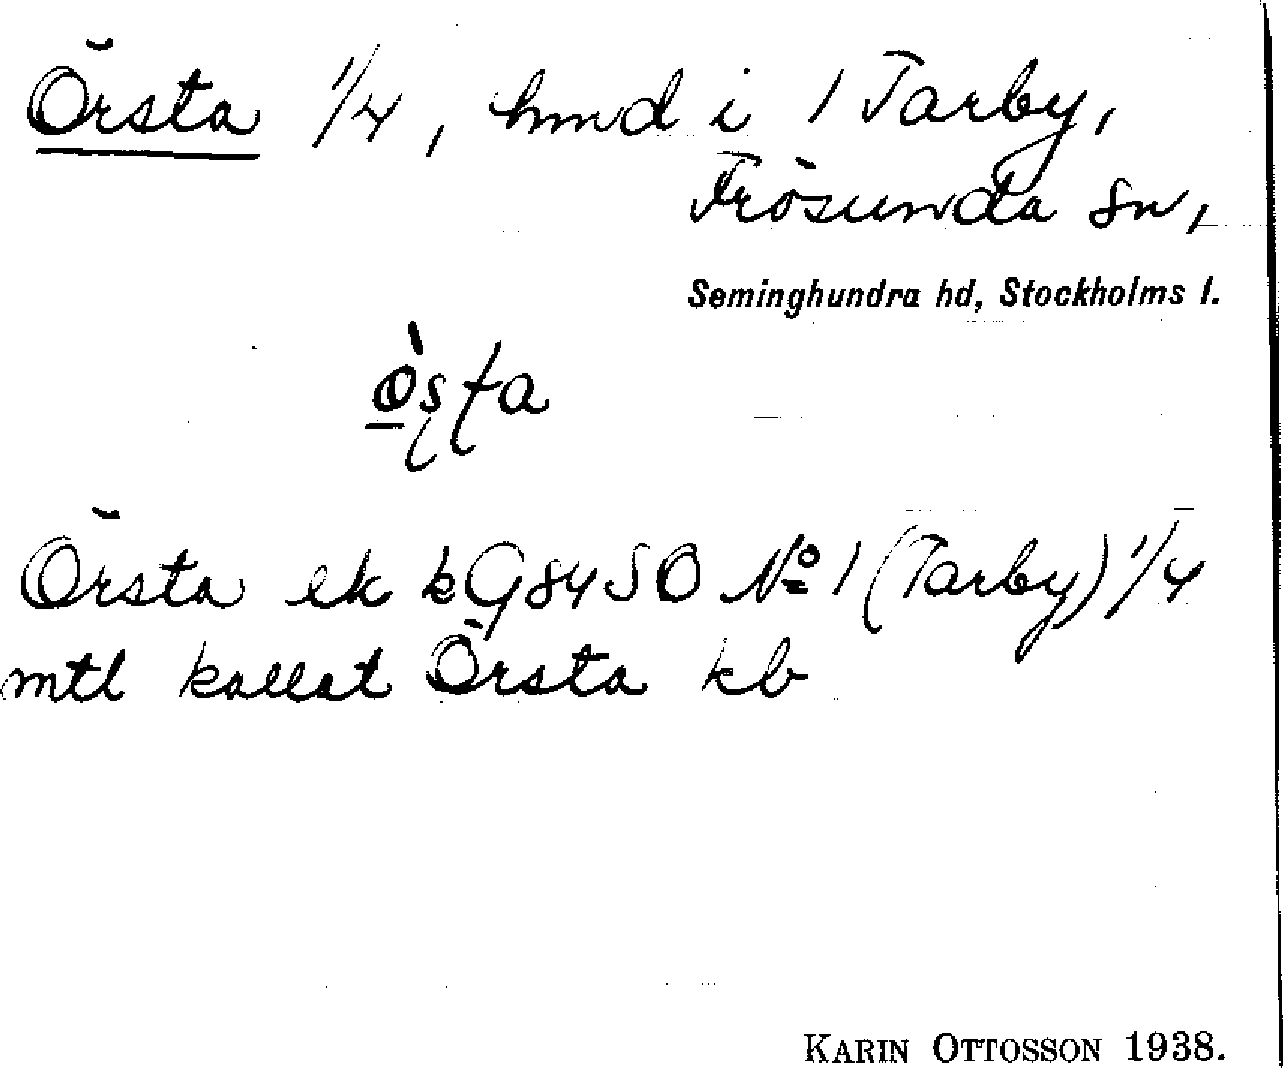 Örsta 1/4, hmd i 1 Tarby,
Frösunda sn,
Seminghundra hd, Stockholms l.
Örsta ek kG84 SO No 1 (Tarby) 1/4
mtl kallat Örsta kb
KARIN OTTOSSON 1938.